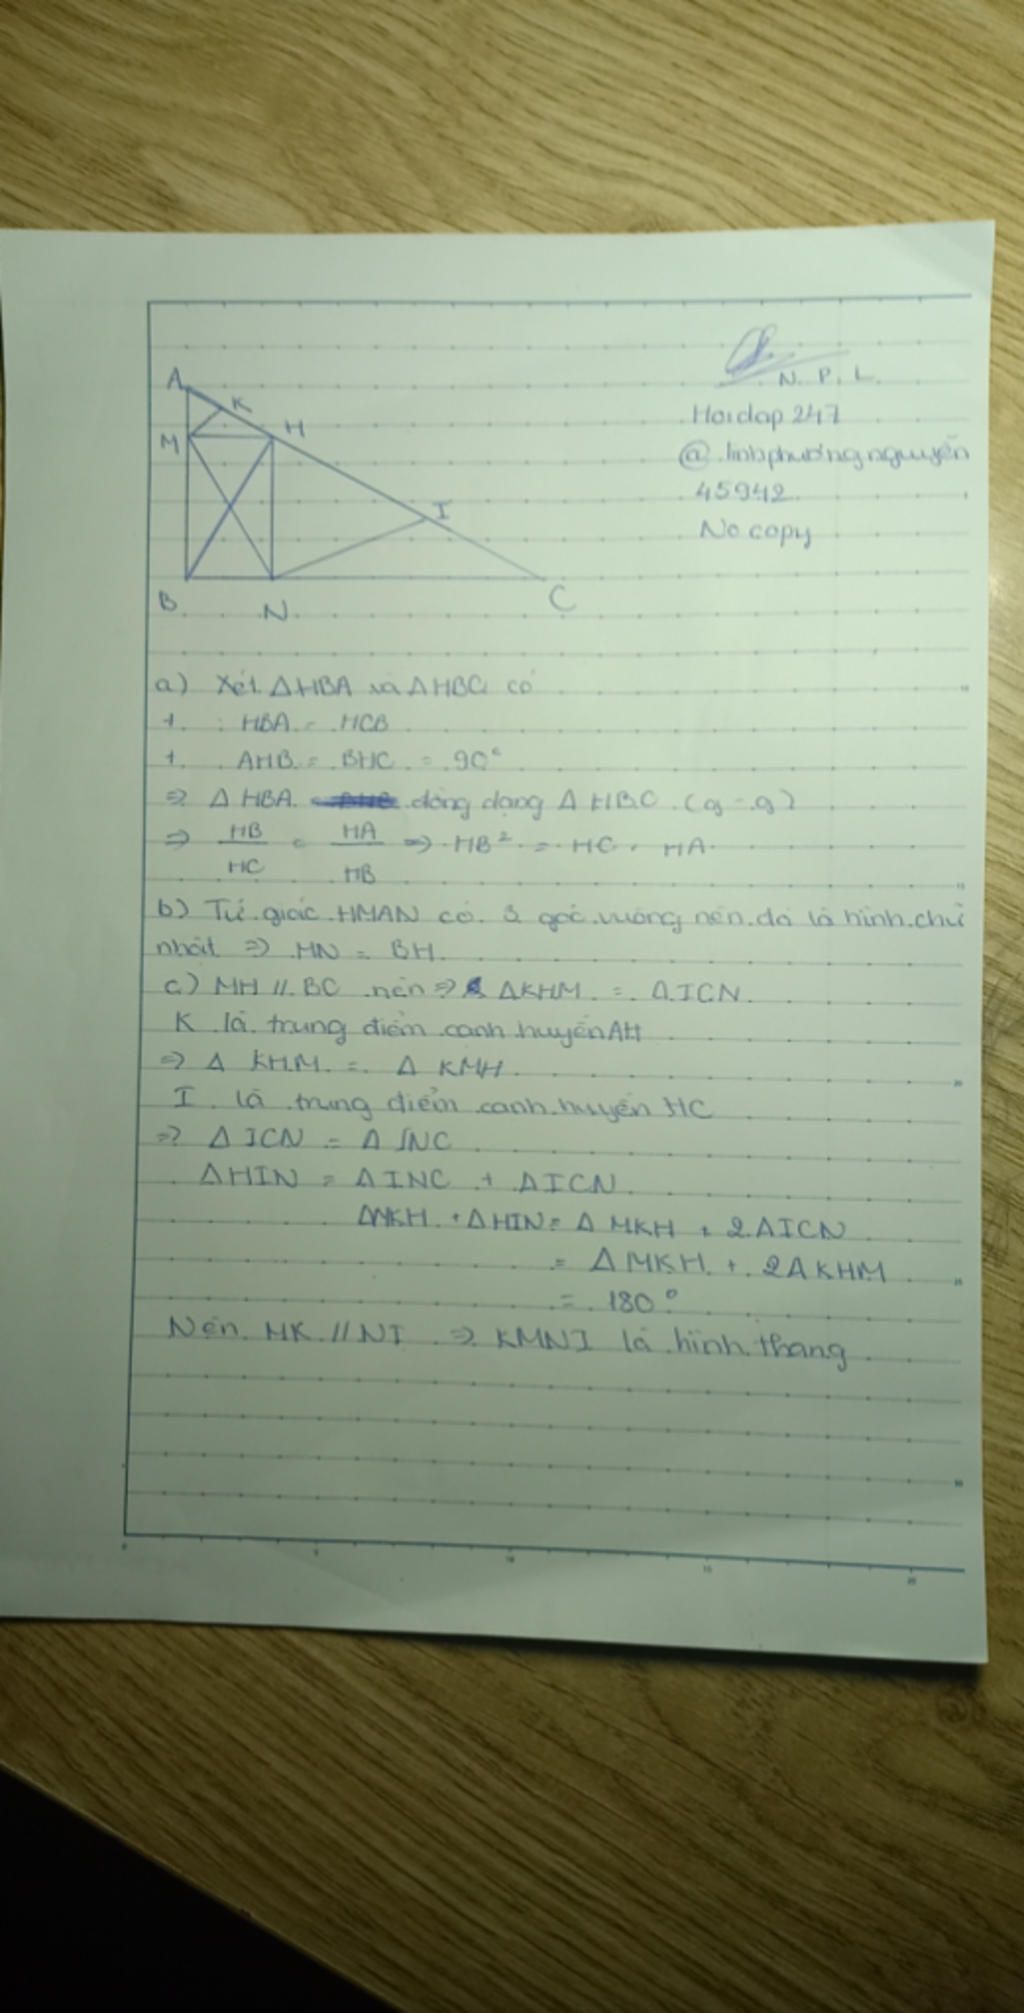 A
K
H
M
I
B
N
C
N. P. L.
Hoidap 247
@ linhphươngnguyễn
45942
No copy
a) Xét ΔHBA và ΔHBC có
+ HBA = HCB
+ AHB = BHC = 90°
=> Δ HBA đồng dạng Δ HBC (g-g)
=> HB/HC = HA/HB => HB² = HC . HA
b) Tứ giác HMAN có 3 góc vuông nên đó là hình chữ
nhât => MN = BH
c) MH // BC nên => ΔKHM = ΔICN
K là trung điểm cạnh huyền AH
=> Δ KHM = Δ KMH
I là trung điểm cạnh huyền HC
=> Δ ICN = Δ INC
ΔHIN = ΔINC + ΔICN
ΔMKH + ΔHIN = Δ MKH + 2ΔICN
= ΔMKH + 2ΔKHM
= 180°
Nên MK // NI => KMNI là hình thang